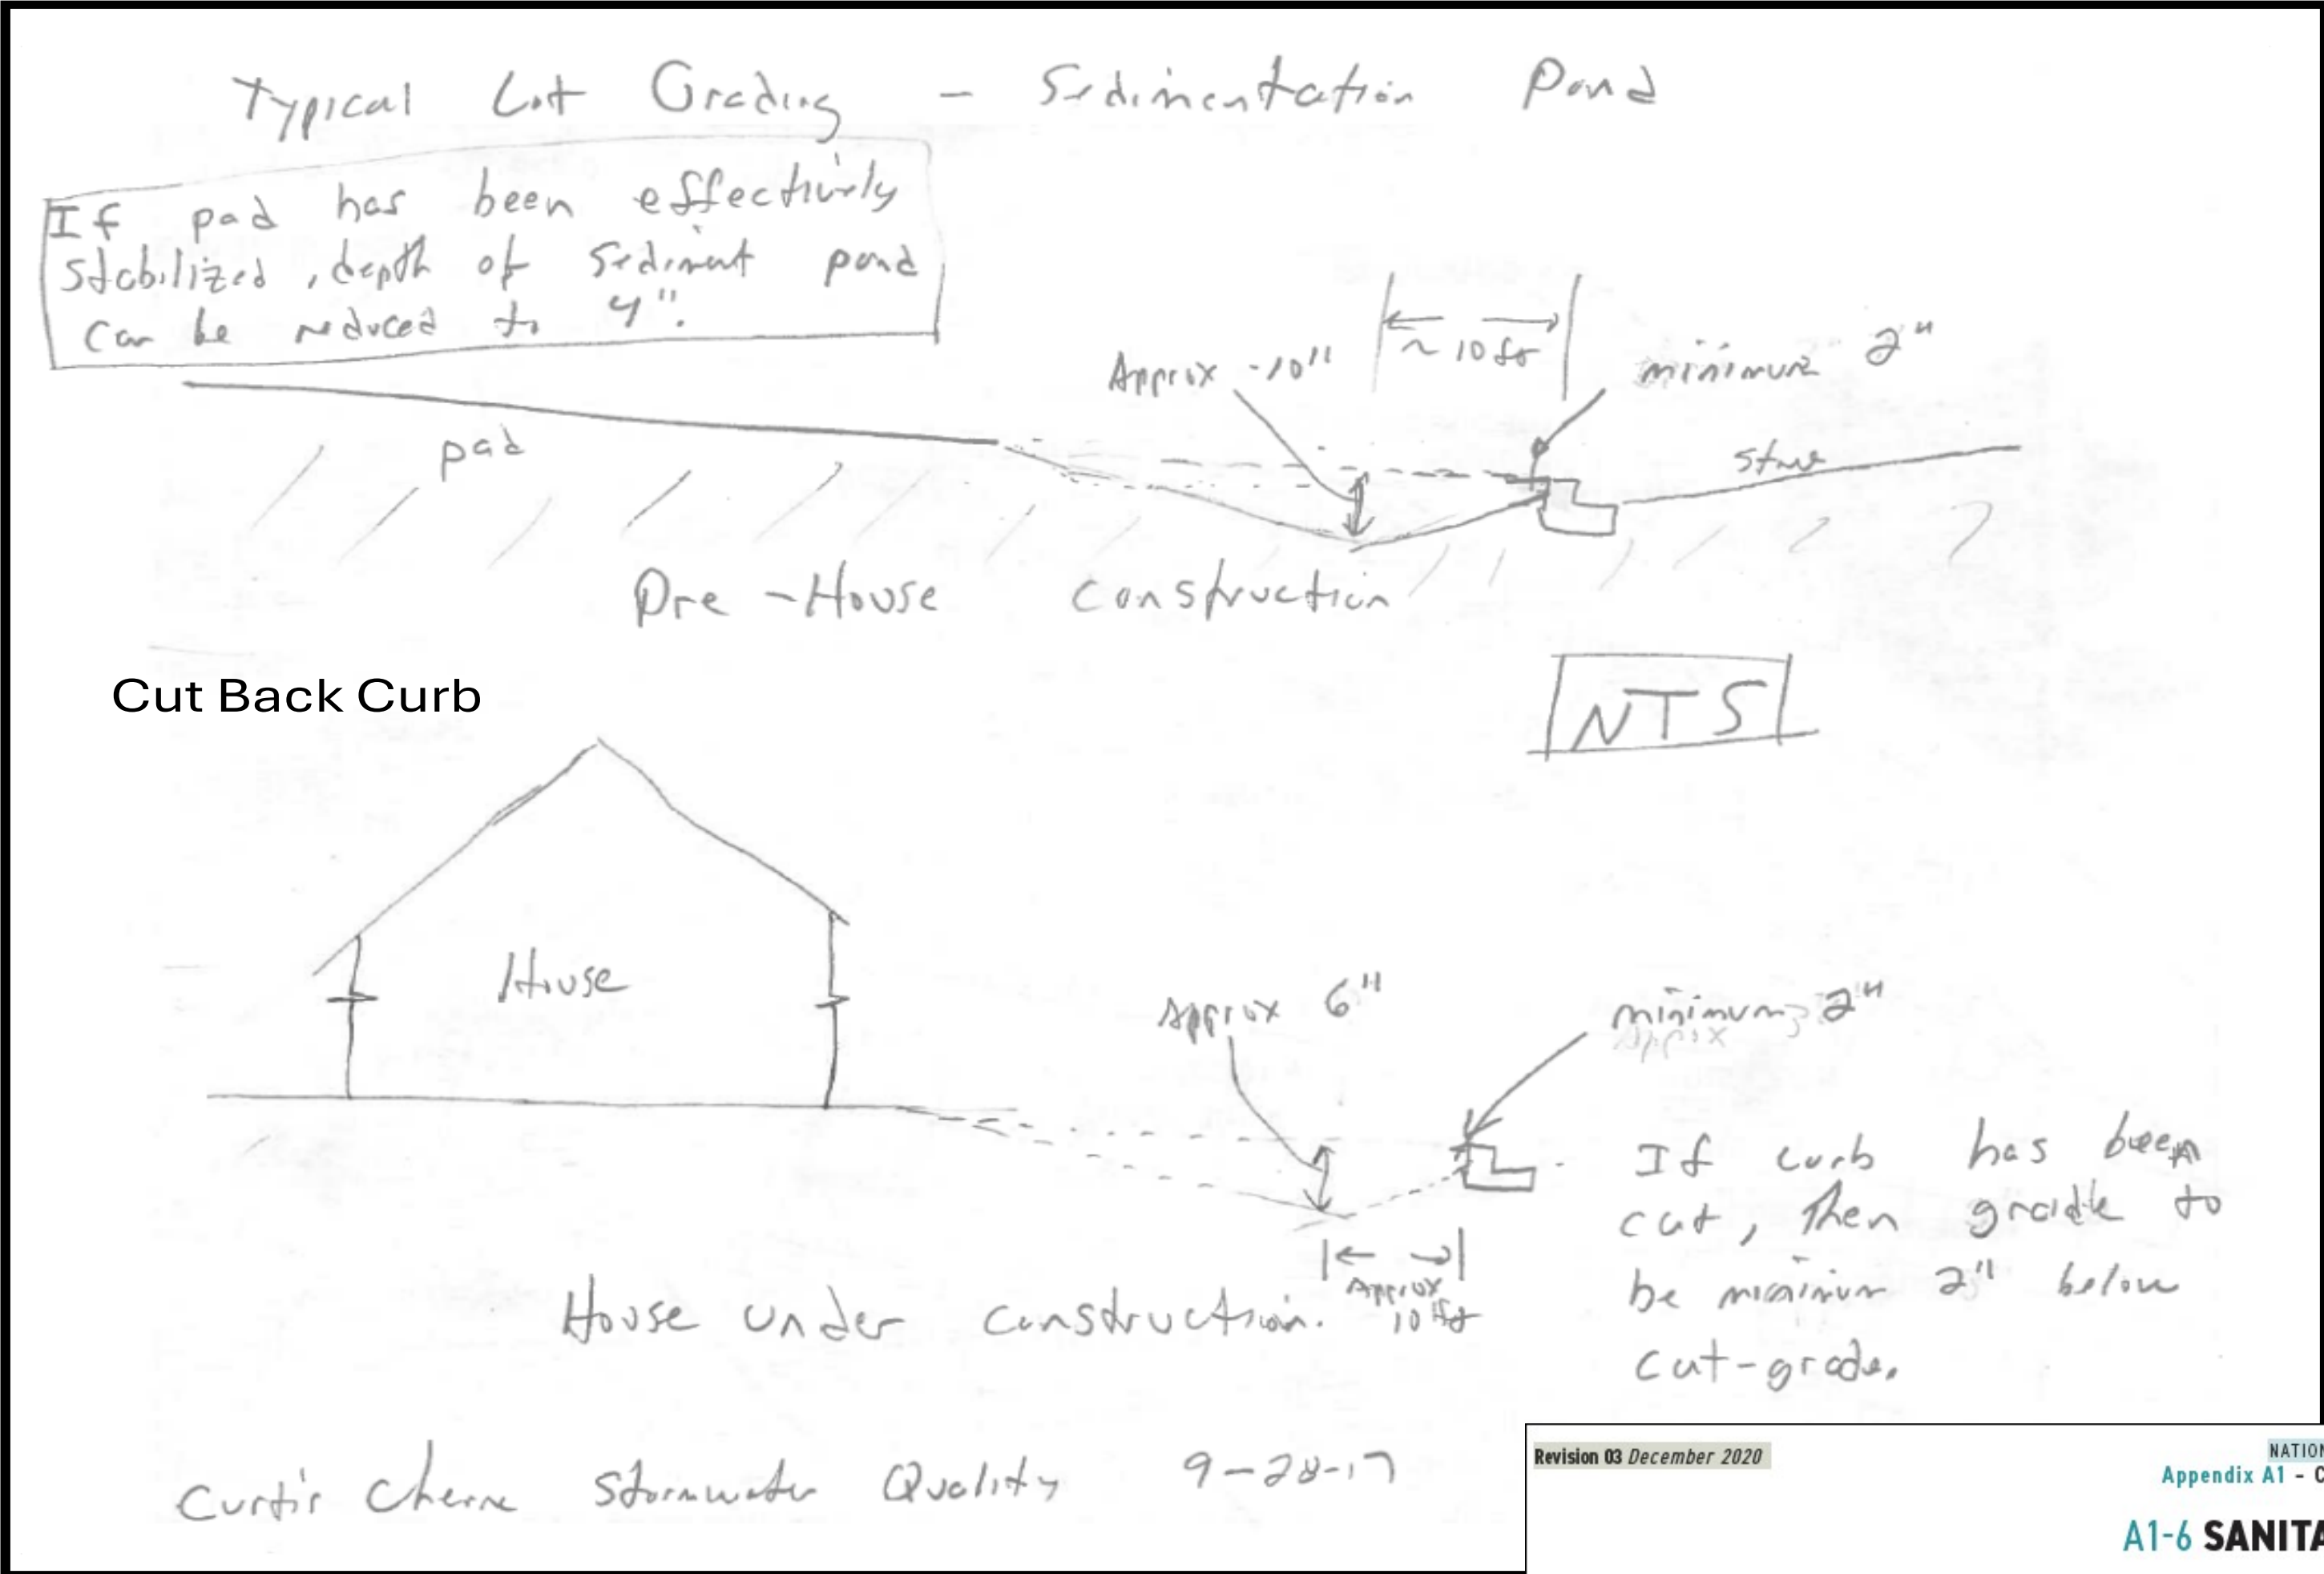 Typical Lot Grading - Sedimentation Pond
If pad has been effectively
stabilized, depth of sediment pond
can be reduced to 4".
Approx -10"
~ 10 ft
minimum 2"
pad
Pre-House Construction
NTS
Cut Back Curb
House
Approx 6"
minimum 2"
Approx
Approx
10 ft
If curb has been
cut, then grade to
be minimum 2" below
cut-grade.
House under construction.
Curtis Cherne Stormwater Quality 9-28-17
Revision 03 December 2020
Appendix A1 -
A1-6